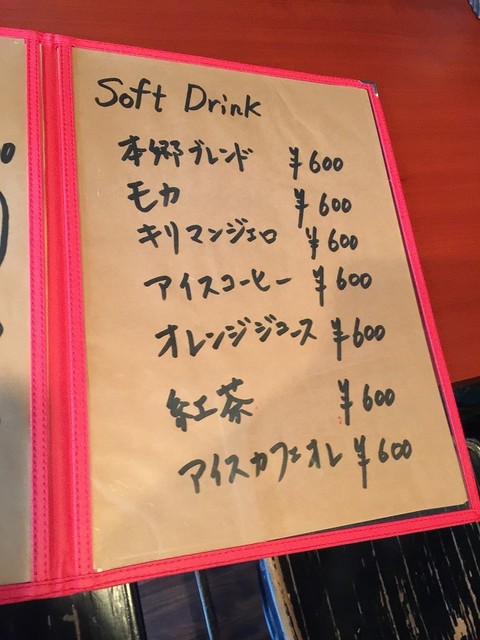 Soft Drink
本郷ブレンド ¥600
モカ ¥600
キリマンジェロ ¥600
アイスコーヒー ¥600
オレンジジュース ¥600
紅茶 ¥600
アイスカフェオレ ¥600